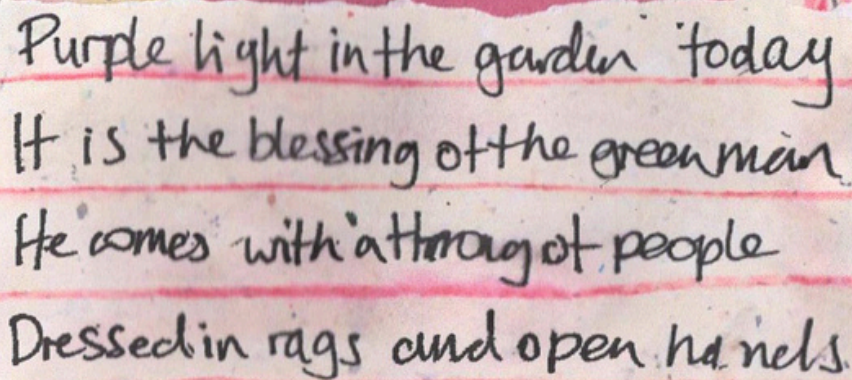 Purple light in the garden today
It is the blessing of the green man
He comes with a throng of people
Dressed in rags and open hands